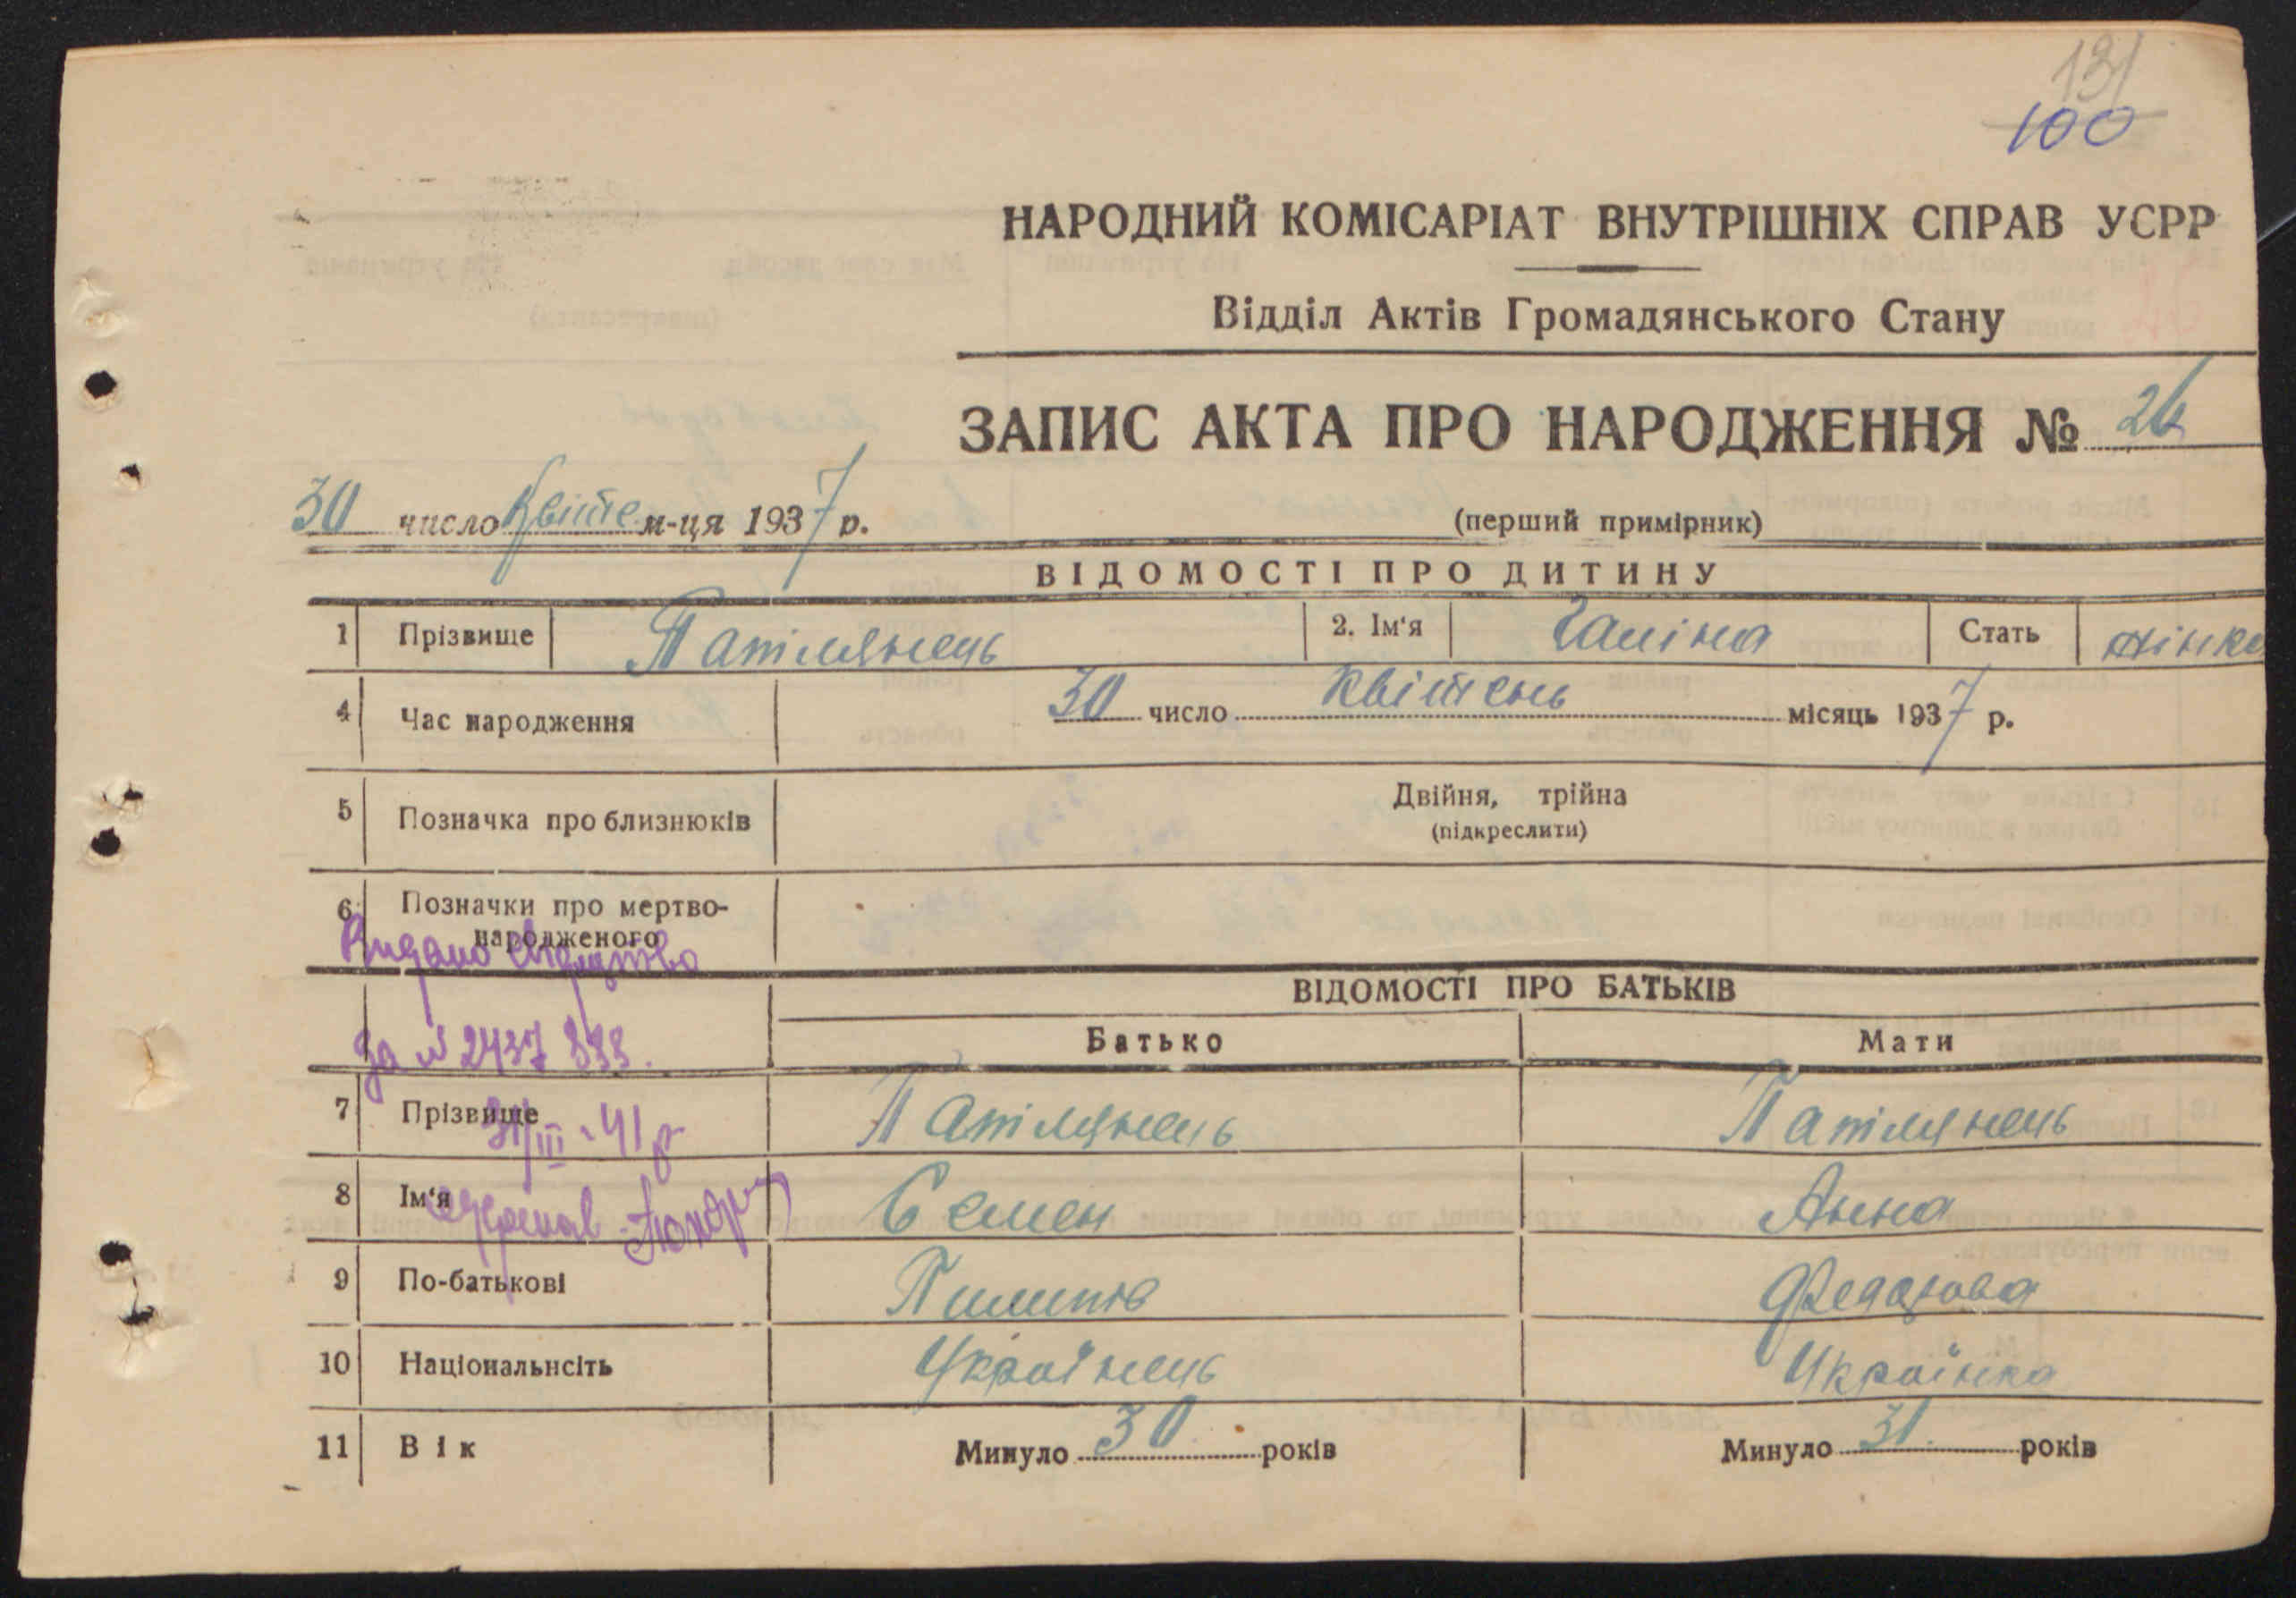 131
100
НАРОДНИЙ КОМІСАРІАТ ВНУТРІШНІХ СПРАВ УСРР
Відділ Актів Громадянського Стану
ЗАПИС АКТА ПРО НАРОДЖЕННЯ № 26
30 число Квіте м-ця 1937 р.
(перший примірник)
ВІДОМОСТІ ПРО ДИТИНУ
1 Прізвище Патімянець 2. Ім'я Галіна Стать жінка
4 Час народження 30 число Квітень місяць 1937 р.
5 Позначка про близнюків Двійня, трійна
(підкреслити)
6 Позначки про мертво-
народженого
Видано свідоцтво
ВІДОМОСТІ ПРО БАТЬКІВ
Батько Мати
За № 2437
7 Прізвище Патімянець Патімянець
31/III-41р
8 Ім'я Семен Анна
9 По-батькові Пилипів
10 Національнсіть Українець Українка
11 Вік Минуло 30 років Минуло 31 років